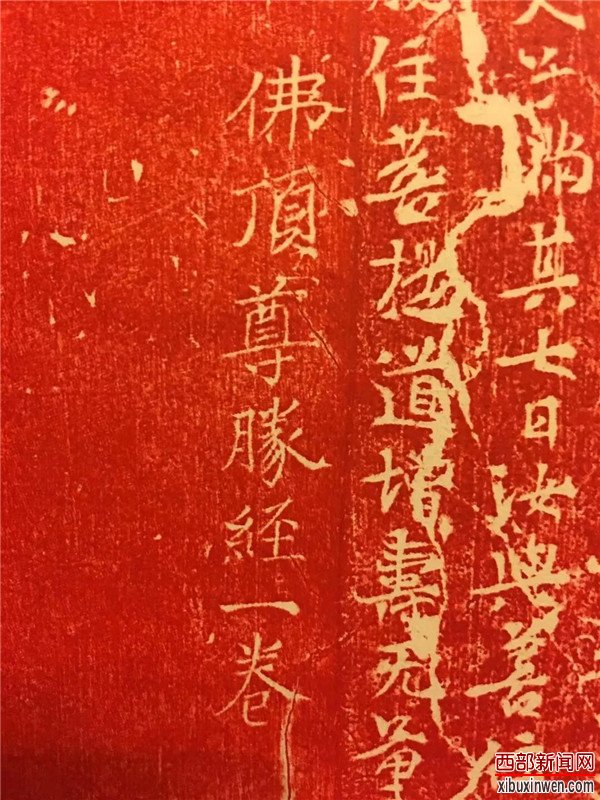 天子滿其七日汝與善住
住菩提道增壽无量
佛頂尊勝経一卷
西部新闻网
xibuxinwen.com